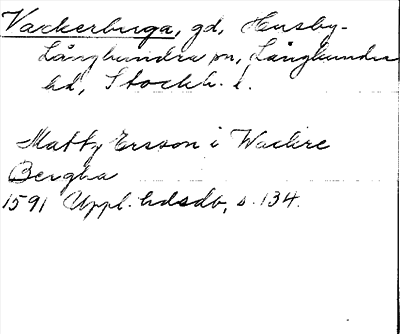 Vackerberga, gd, Husby-
Långhundra sn, Långhundra
hd, Stockh. l.
Matts Ersson i Wackre
Bergha
1591 Uppl. hdsdb, s. 134.